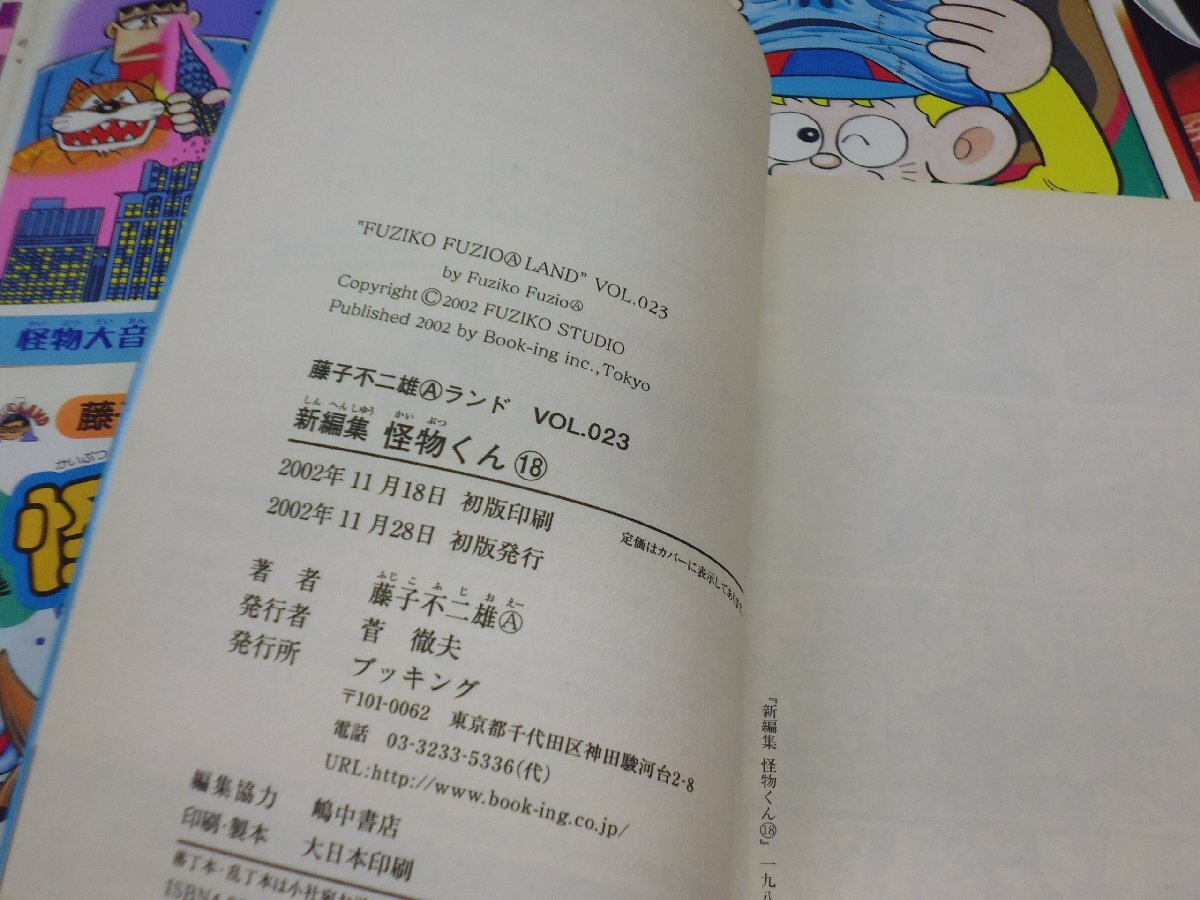 "FUZIKO FUZIOⒶLAND" VOL.023
by Fuziko FuzioⒶ
Copyright©2002 FUZIKO STUDIO
Published 2002 by Book-ing inc., Tokyo
藤子不二雄Ⓐランド VOL.023
しんへんしゅう かいぶつ
新編集 怪物くん⑱
2002年11月18日 初版印刷
2002年11月28日 初版発行
定価はカバーに表示してあります
ふじこふじおえー
著者 藤子不二雄Ⓐ
発行者 菅 徹夫
発行所 ブッキング
〒101-0062 東京都千代田区神田駿河台2-8
電話 03-3233-5336(代)
URL:http://www.book-ing.co.jp/
編集協力 嶋中書店
印刷・製本 大日本印刷
落丁本・乱丁本は小社宛
『新編集 怪物くん⑱』一九八
かいぶつだいおん
怪物大音
藤
かいぶつ
怪